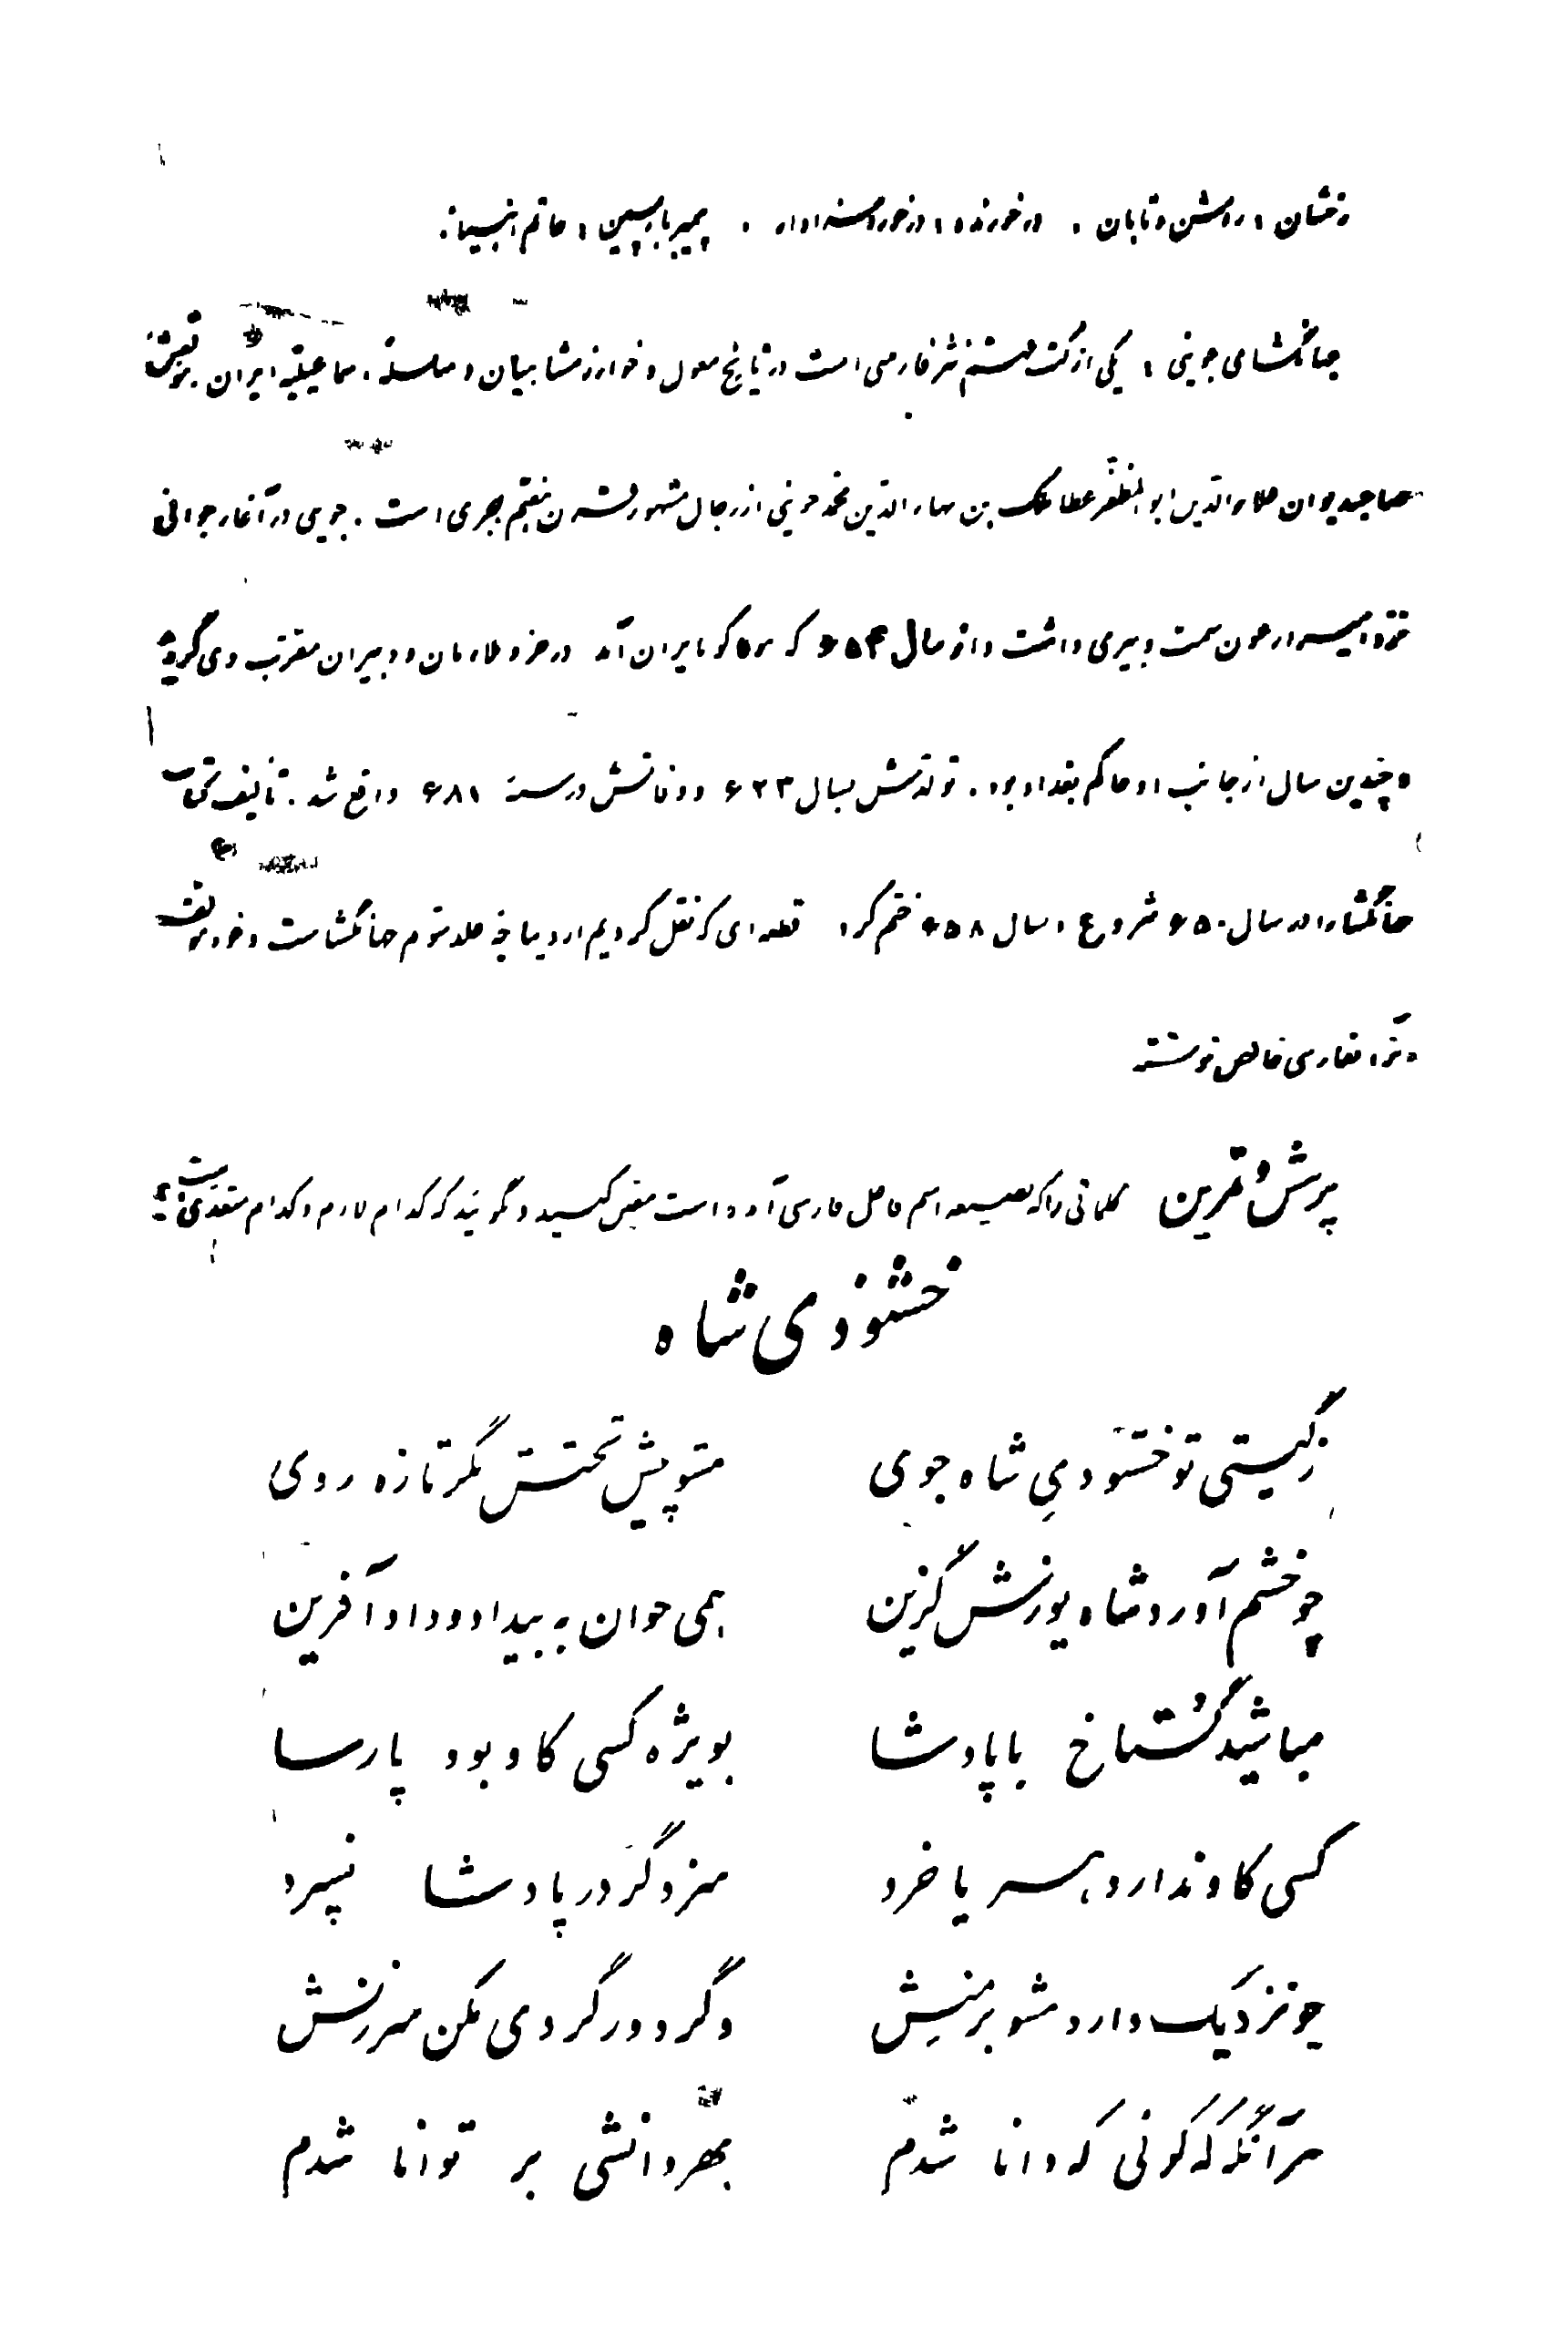 رخشان : روشن و تابان . درخورنده : درخور و سزاوار . پیمبر بازپسین : خاتم انبیاء .
جهانگشای جوینی : یکی از کتب نثر فارسی است در تاریخ مغول و خوارزمشاهیان و سلسلهٔ اسماعیلیه ایران . مؤلفش
صاحبدیوان علاءالدین ابوالمظفر عطاملک بن بهاءالدین محمد جوینی از رجال مشهور قرن هفتم هجری است . جوینی در آغاز جوانی
نزد امیر ارغون سمت دبیری داشت و از سال ۶۵۴ که هلاکو بایران آمد در جزو ملازمان و دبیران مقرب وی گردید
و چندین سال از جانب او حاکم بغداد بود . تولدش بسال ۶۲۳ و وفاتش در سنهٔ ۶۸۱ واقع شد . تألیف کتاب
جهانگشا را در سال ۶۵۰ شروع و سال ۶۵۸ ختم کرد قطعه‌ای که نقل کردیم از دیباچه جلد سوم جهانگشا است و خود مؤلف
آنرا بفارسی خالص نوشته
پرسش و تمرین کلماتی را که بصیغه اسم فاعل فارسی آمده است معین کنید و بگویید که کدام لازم و کدام متعدی است ؟
خشنودی شاه
ز گیتی تو خشنودی شاه جوی مشو پیش تختش مگر تازه روی
چو خشم آورد شاه پوزش گزین همی خوان به بیداد و داد آفرین
مباشید گستاخ با پادشا بویژه کسی کاو بود پارسا
کسی کاو ندارد هنر با خرد سزد گر در پادشا نسپرد
چو نزدیک دارد مشو برمنش وگر دور گردی مکن سرزنش
هر آنگه که گوئی که دانا شدم بهر دانشی بر توانا شدم